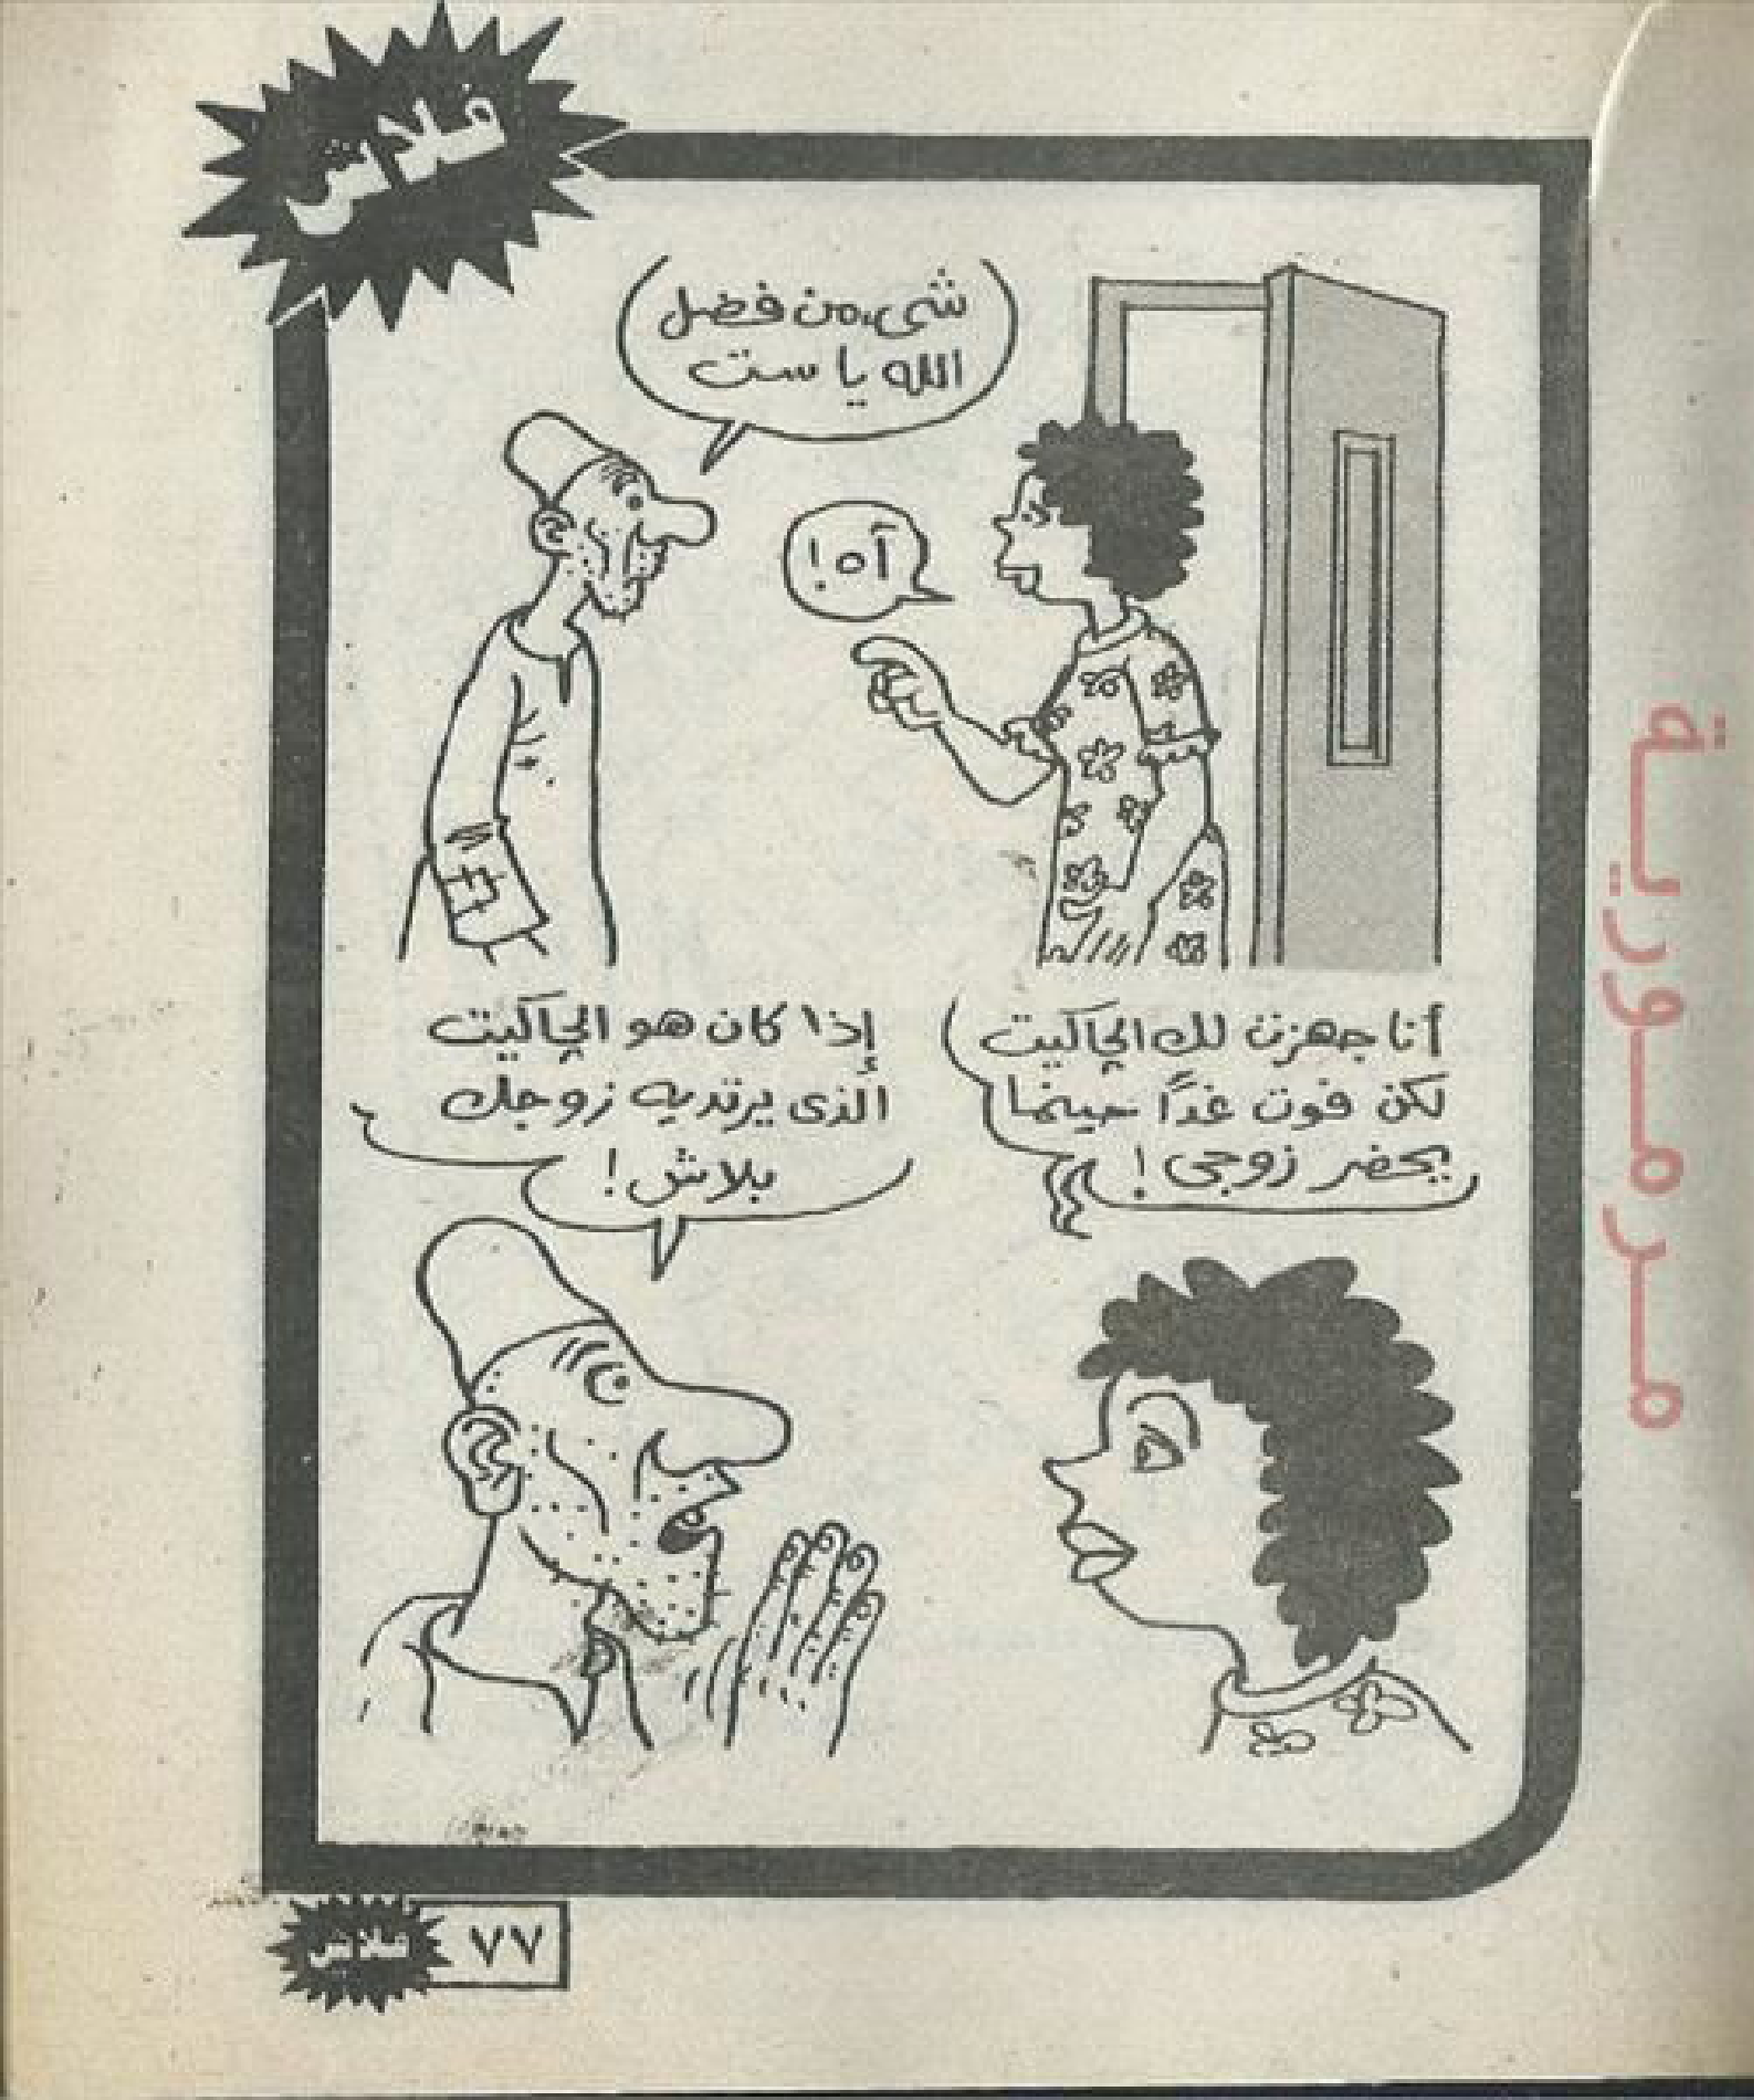 فلاش
شىء من فضل
الله يا ست
آه!
أنا جهزت لك الجاكيت
لكن فوت غداً حينما
يحضر زوجى!
إذا كان هو الجاكيت
الذى يرتديه زوجك
بلاش!
٧٧
فلاش
مرمورية